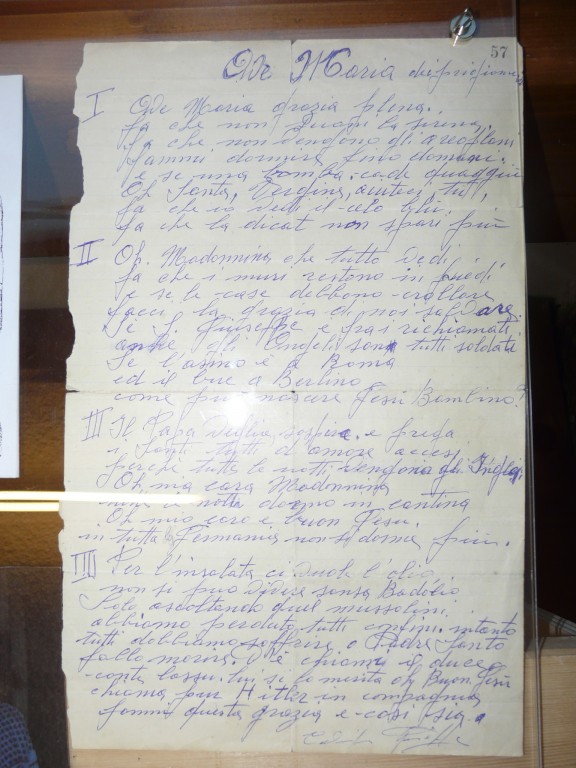 57
Ave Maria dei prigionieri
I Ave Maria grazia plena.
fa che non suoni la sirena,
fa che non vengono gli areoplani
fammi dormire fino domani.
e se una bomba cade quaggiù
Oh Santa, Vergine, aiuteci, tutti,
fa che io il celo blu.
fa che la dicat non spari più
II Oh. Madonnina che tutto vedi
fa che i muri restono in piedi
e se le case debbono crollare
facci la grazia di noi salvare.
Se S. Giuseppe e fra i richiamati
anche gli Angeli sono tutti soldati
Se l'asino è a Roma
ed il bue a Berlino
come può nascere Gesù Bambino?
III Il Papa veglia, sospira e prega
i Santi tutti d'amore accesi
perche tutte le notti vengono gli Inglesi
Oh ma cara Madonnina
notte dormo in cantina
Oh mio caro e buon Gesu.
in tutta Germania non si dorme più.
IIII Per l'insalata ci vuole l'olio
non si puo vivere senza Badolio
ascoltando quel mussolini
abbiamo perduto tutti confini intanto
tutti dobbiamo soffrire o Padre Santo
fallo morire. chiama il duce
lassu. tu se lo merita oh Buon Gesù
chiama pur Hitler in compagnia
fammi questa grazia e così sia.